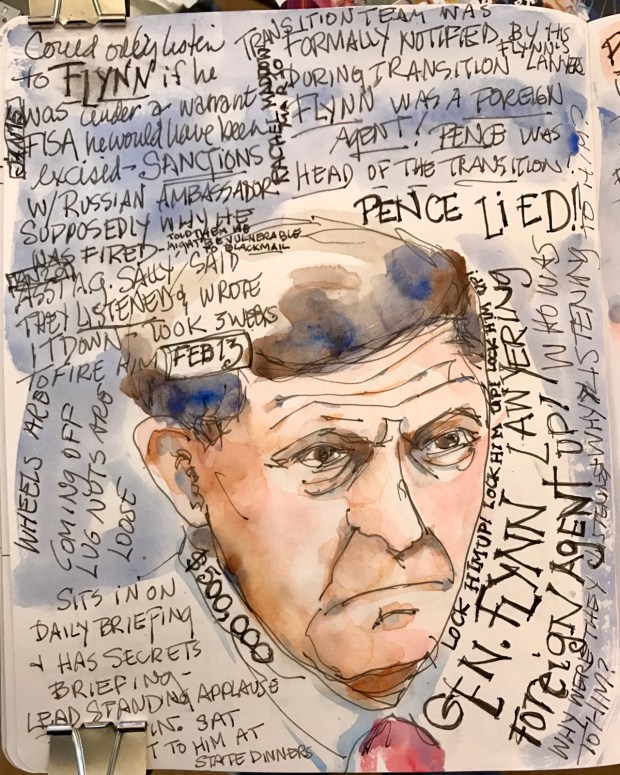 Could only listen
to FLYNN if he
was under a warrant
FISA he would have been
excised - SANCTIONS
W/ RUSSIAN AMBASSADOR
SUPPOSEDLY WHY HE
WAS FIRED -
TOLD THEM HE
MIGHT BE VULNERABLE
TO BLACKMAIL
ASST A.G. SALLY SAID
THEY LISTENED & WROTE
IT DOWN - TOOK 3 WEEKS
TO FIRE HIM FEB 13
RACHEL MADDOW
TRANSITION TEAM WAS
FORMALLY NOTIFIED BY HIS
FLYNN'S LAWYER
DURING TRANSITION
FLYNN WAS A FOREIGN
AGENT! PENCE WAS
HEAD OF THE TRANSITION!
PENCE LIED!
WHEELS ARE
COMING OFF
LUG NUTS ARE
LOOSE
$500,000
SITS IN ON
DAILY BRIEFING
& HAS SECRETS
BRIEFING -
LEAD STANDING APPLAUSE
IN. SAT
T TO HIM AT
STATE DINNERS
LOCK HIM UP! LOCK HIM UP! LOCK HIM UP! LOCK HIM UP!
GEN. FLYNN LAWYERING
UP! IN HO WAS
FOREIGN AGENT
WHY WERE THEY LISTENING
TO HIM?